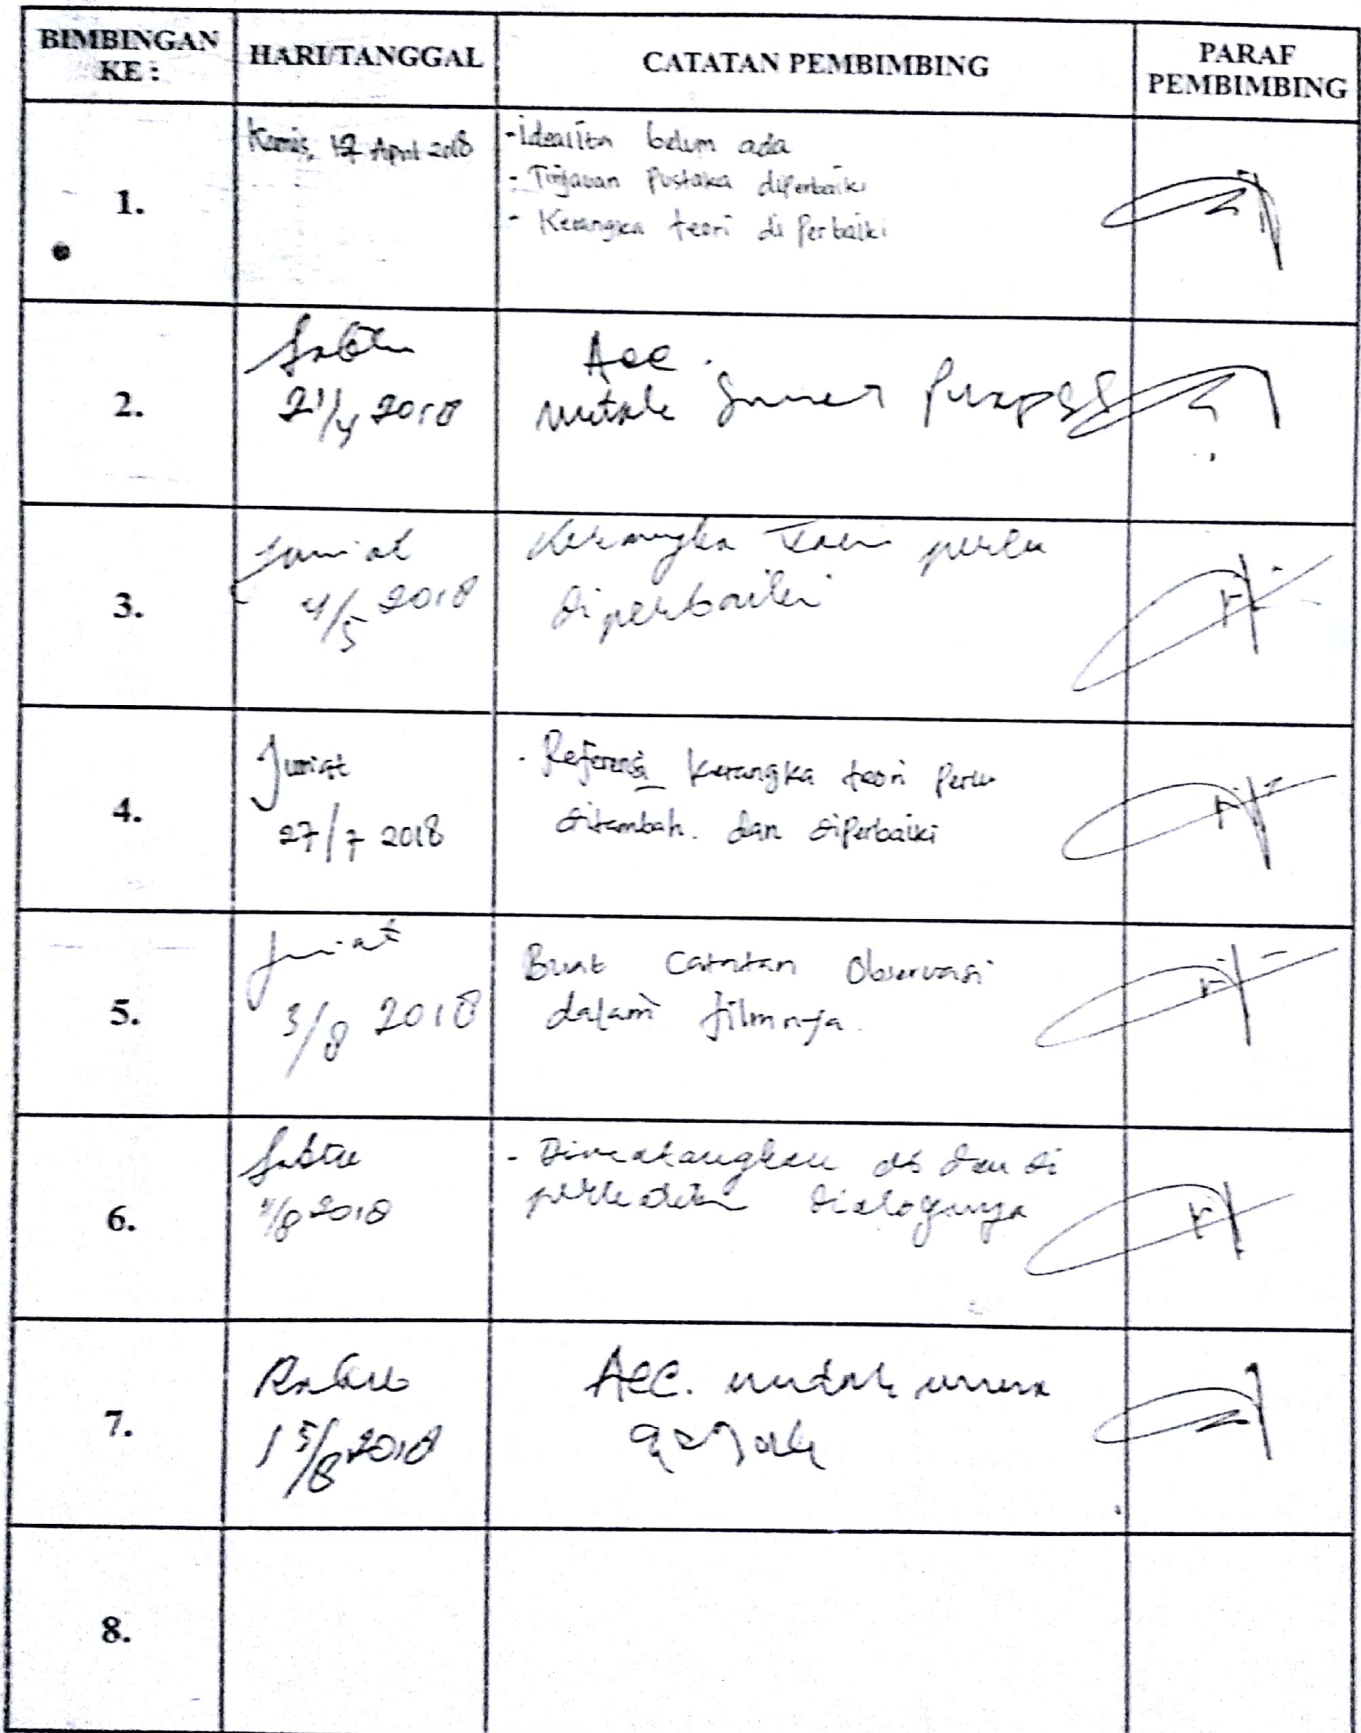 BIMBINGAN KE :
HARI/TANGGAL
CATATAN PEMBIMBING
PARAF PEMBIMBING
1.
Kamis, 12 April 2018
- Idealita belum ada
- Tinjauan Pustaka diperbaiki
- Kerangka teori di Perbaiki
2.
Sabtu
21/4 2018
Acc.
untuk
3.
Jum'at
4/5 2018
Kerangka Teori perlu
diperbaiki
4.
Jum'at
27/7 2018
- Referensi kerangka teori Perlu
ditambah. dan diperbaiki
5.
Jum'at
3/8 2018
Buat Catatan Observasi
dalam filmnya.
6.
Sabtu
/8 2018
- dan di
dialognya
7.
Rabu
15/8 2018
Acc. untuk
8.